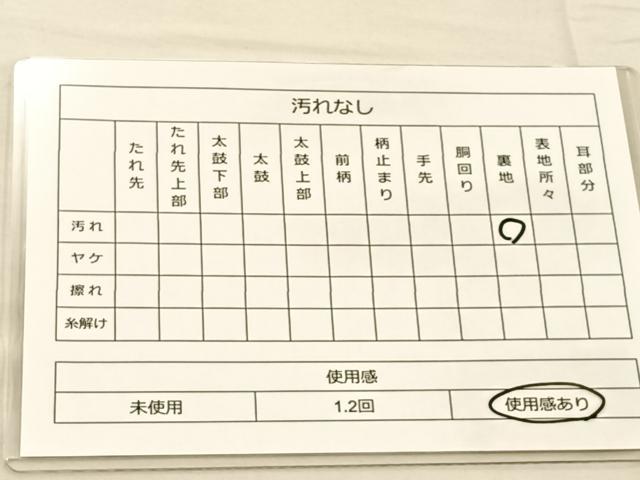 汚れなし
たれ先 たれ先上部 太鼓下部 太鼓 太鼓上部 前柄 柄止まり 手先 胴回り 裏地 表地所々 耳部分
汚れ ○
ヤケ
擦れ
糸解け
使用感
未使用 1.2回 使用感あり